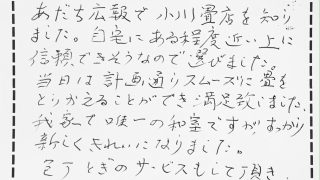 あだち広報で小川畳店を知り
ました。自宅にある程度近い上に
信頼できそうなので選びました。
当日は計画通りスムーズに畳を
とりかえることができ満足致しました。
我家で唯一の和室ですが、すっかり
新しくきれいになりました。
包丁とぎのサービスもして頂き、